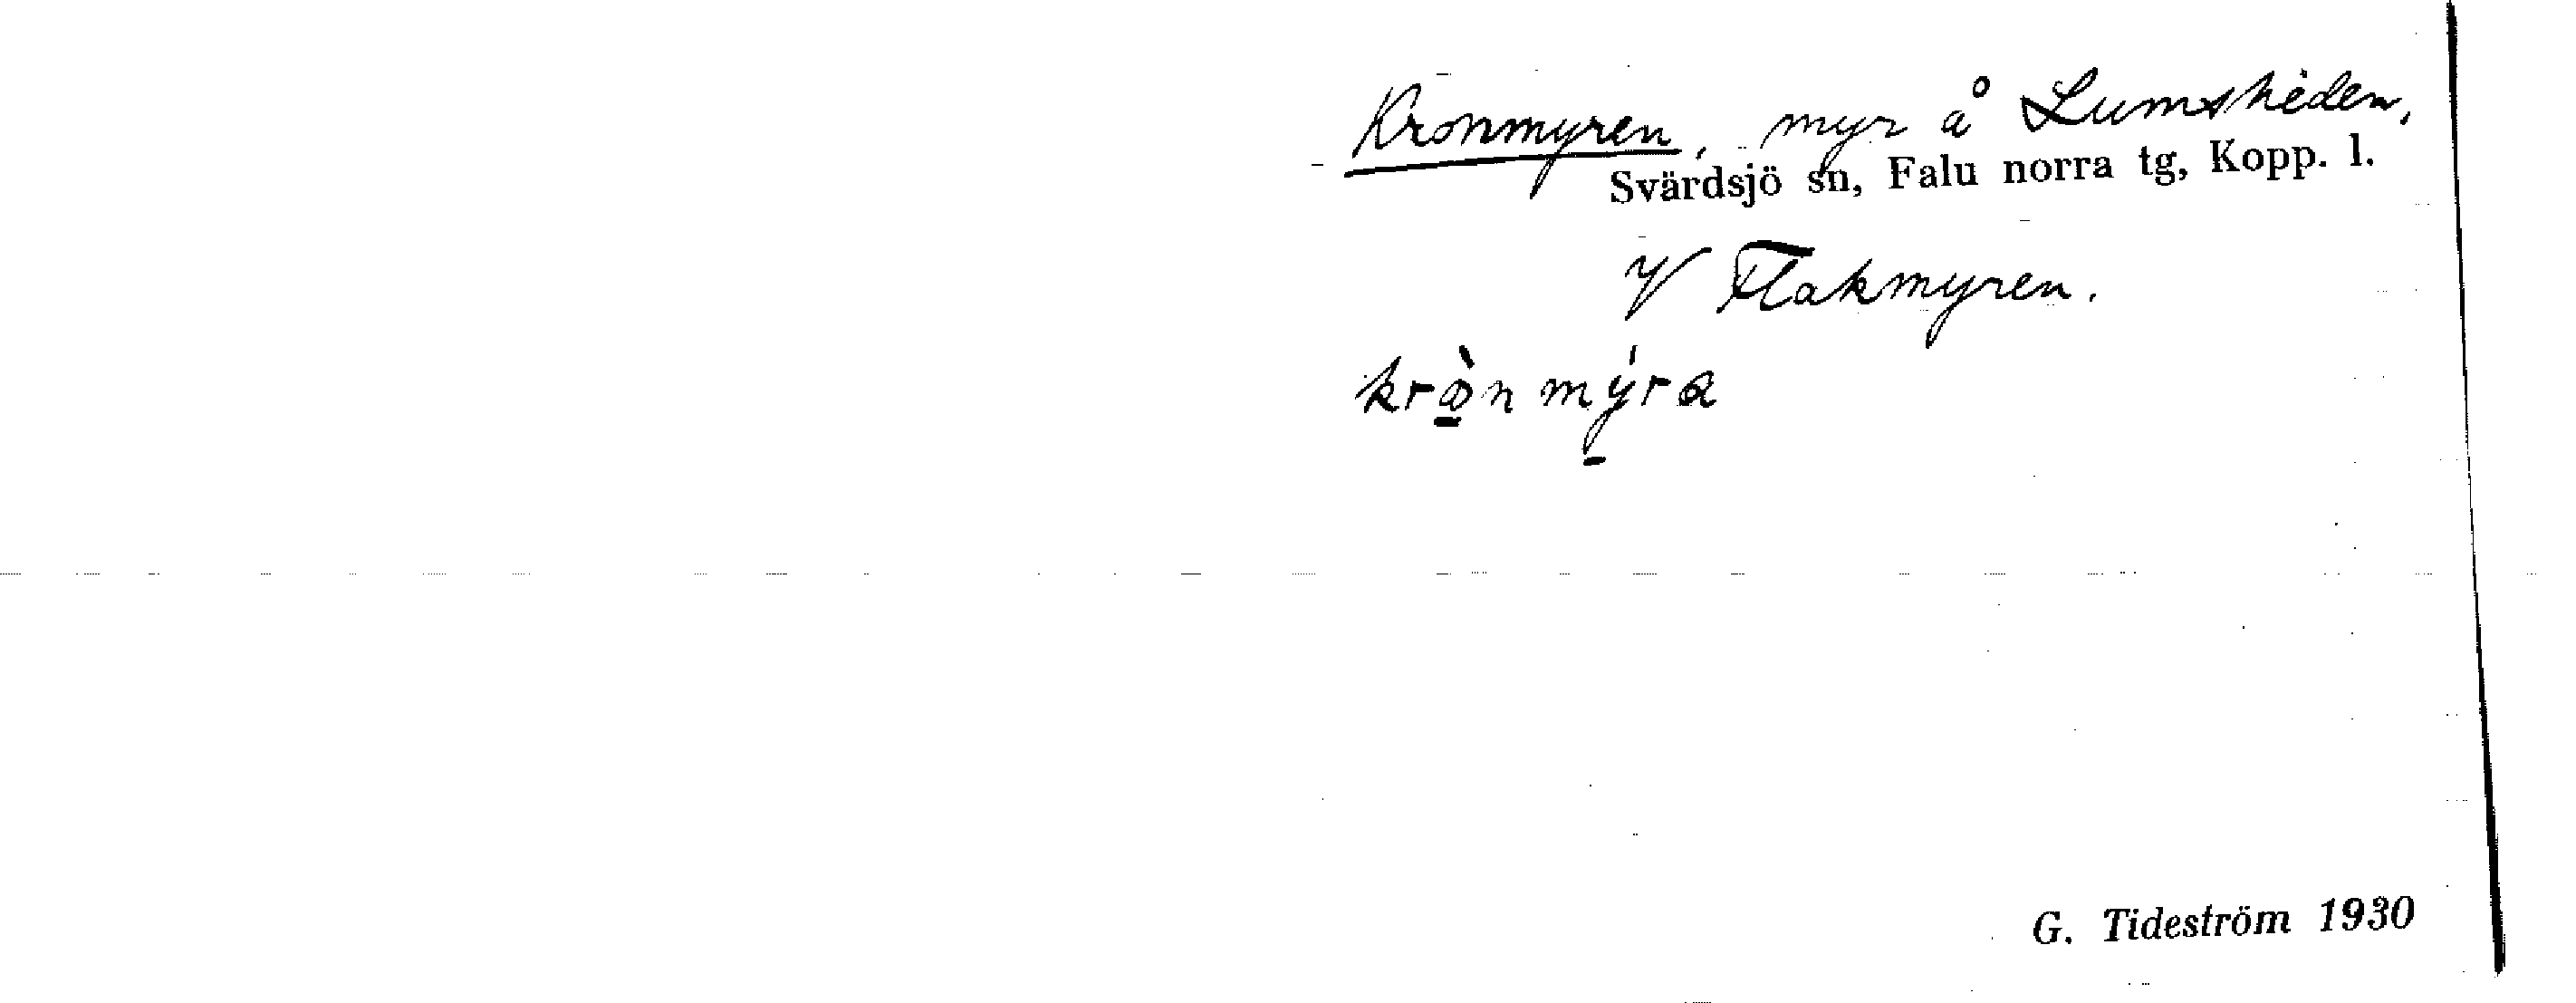 Kronmyren, myr å Lumsheden,
Svärdsjö sn, Falu norra tg, Kopp. l.
V Flakmyren.
krò̱n mý̱ra
G. Tideström 1930